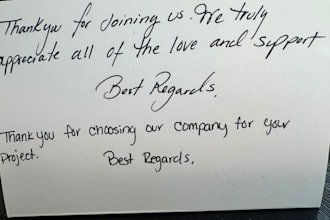 Thankyou for Joining us. We truly
appreciate all of the love and support
Best Regards,
Thank you for choosing our company for your
project.
Best Regards,